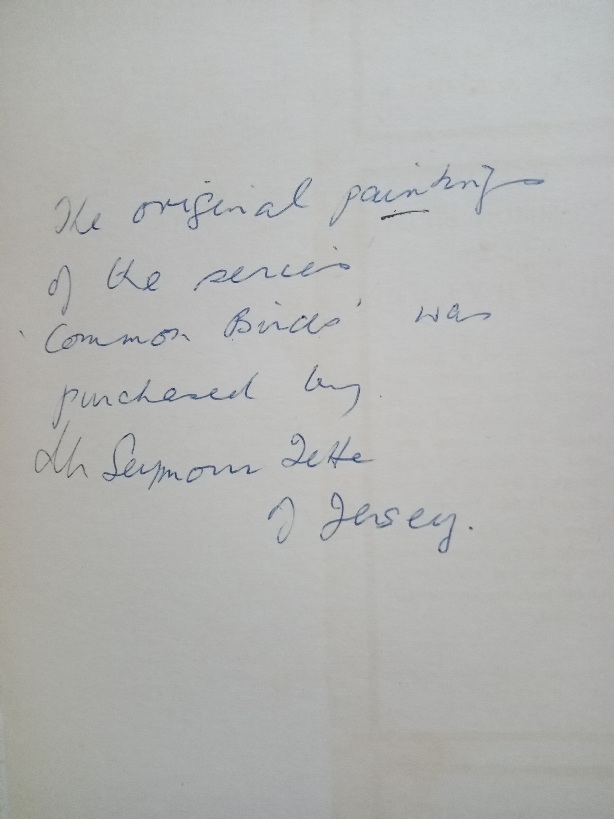 The original paintings
of the series
'Common Birds' was
purchased by
Seymour
of Jersey.